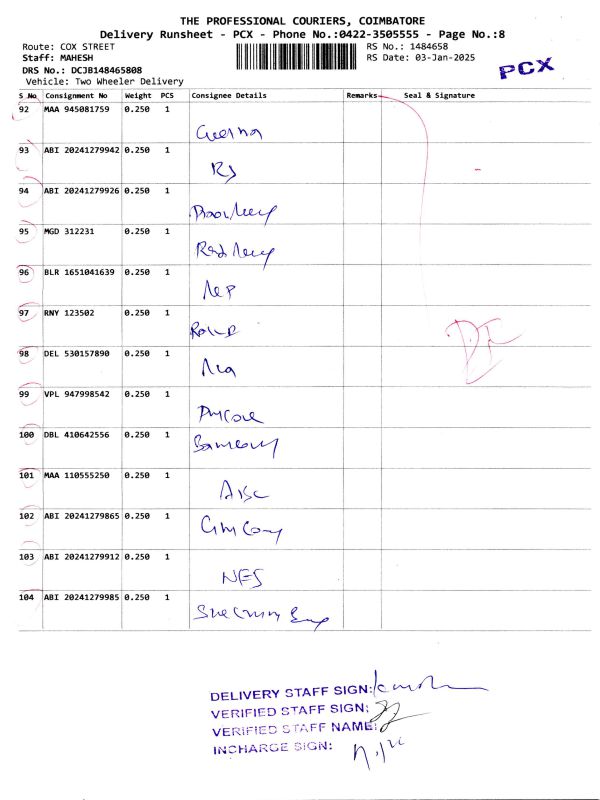 THE PROFESSIONAL COURIERS, COIMBATORE
Delivery Runsheet - PCX - Phone No.:0422-3505555 - Page No.:8
Route: COX STREET
RS No.: 1484658
Staff: MAHESH
RS Date: 03-Jan-2025
DRS No.: DCJB148465808
PCX
Vehicle: Two Wheeler Delivery
S No Consignment No Weight PCS Consignee Details Remarks Seal & Signature
92 MAA 945081759 0.250 1
93 ABI 20241279942 0.250 1
RS
94 ABI 20241279926 0.250 1
95 MGD 312231 0.250 1
96 BLR 1651041639 0.250 1
97 RNY 123502 0.250 1
98 DEL 530157890 0.250 1
99 VPL 947998542 0.250 1
100 DBL 410642556 0.250 1
101 MAA 110555250 0.250 1
102 ABI 20241279865 0.250 1
103 ABI 20241279912 0.250 1
NES
104 ABI 20241279985 0.250 1
DELIVERY STAFF SIGN:
VERIFIED STAFF SIGN:
VERIFIED STAFF NAME:
INCHARGE SIGN: